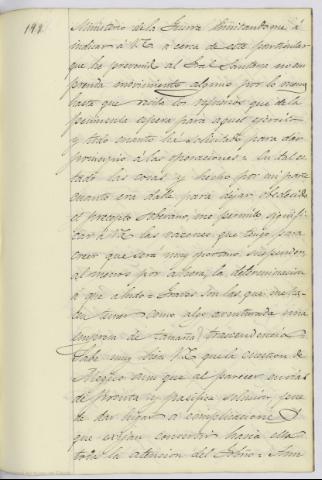 192
Ministerio de la Guerra limitandome á
indicar á V.E. á cerca de este particular
que he prevenido al Gral. Santana no em
prenda movimiento alguno por lo menos
hasta que reciba los refuerzos que de la
peninsula espera para aquel ejercito
y todo cuanto há solicitado para dar
principio á las operaciones = En tal es
tado las cosas y hecho por mi parte
cuanto era dable para dejar obedecido
el precepto Soberano, me permito signifi
car á V.E. las razones que tengo para
creer que será muy oportuno suspender,
al menos por ahora, la determinacion
á que aludo = Graves son las que me ha
cen tener como algo aventurada una
empresa de tamaña trascendencia
Sabe muy bien V.E. que la cuestion de
Megico aun que al parecer
de pronta y pacifica solucion, puede
de dar lugar á complicaciones
que exijan concentrar hacia ella
toda la atencion del Gobno = Aun